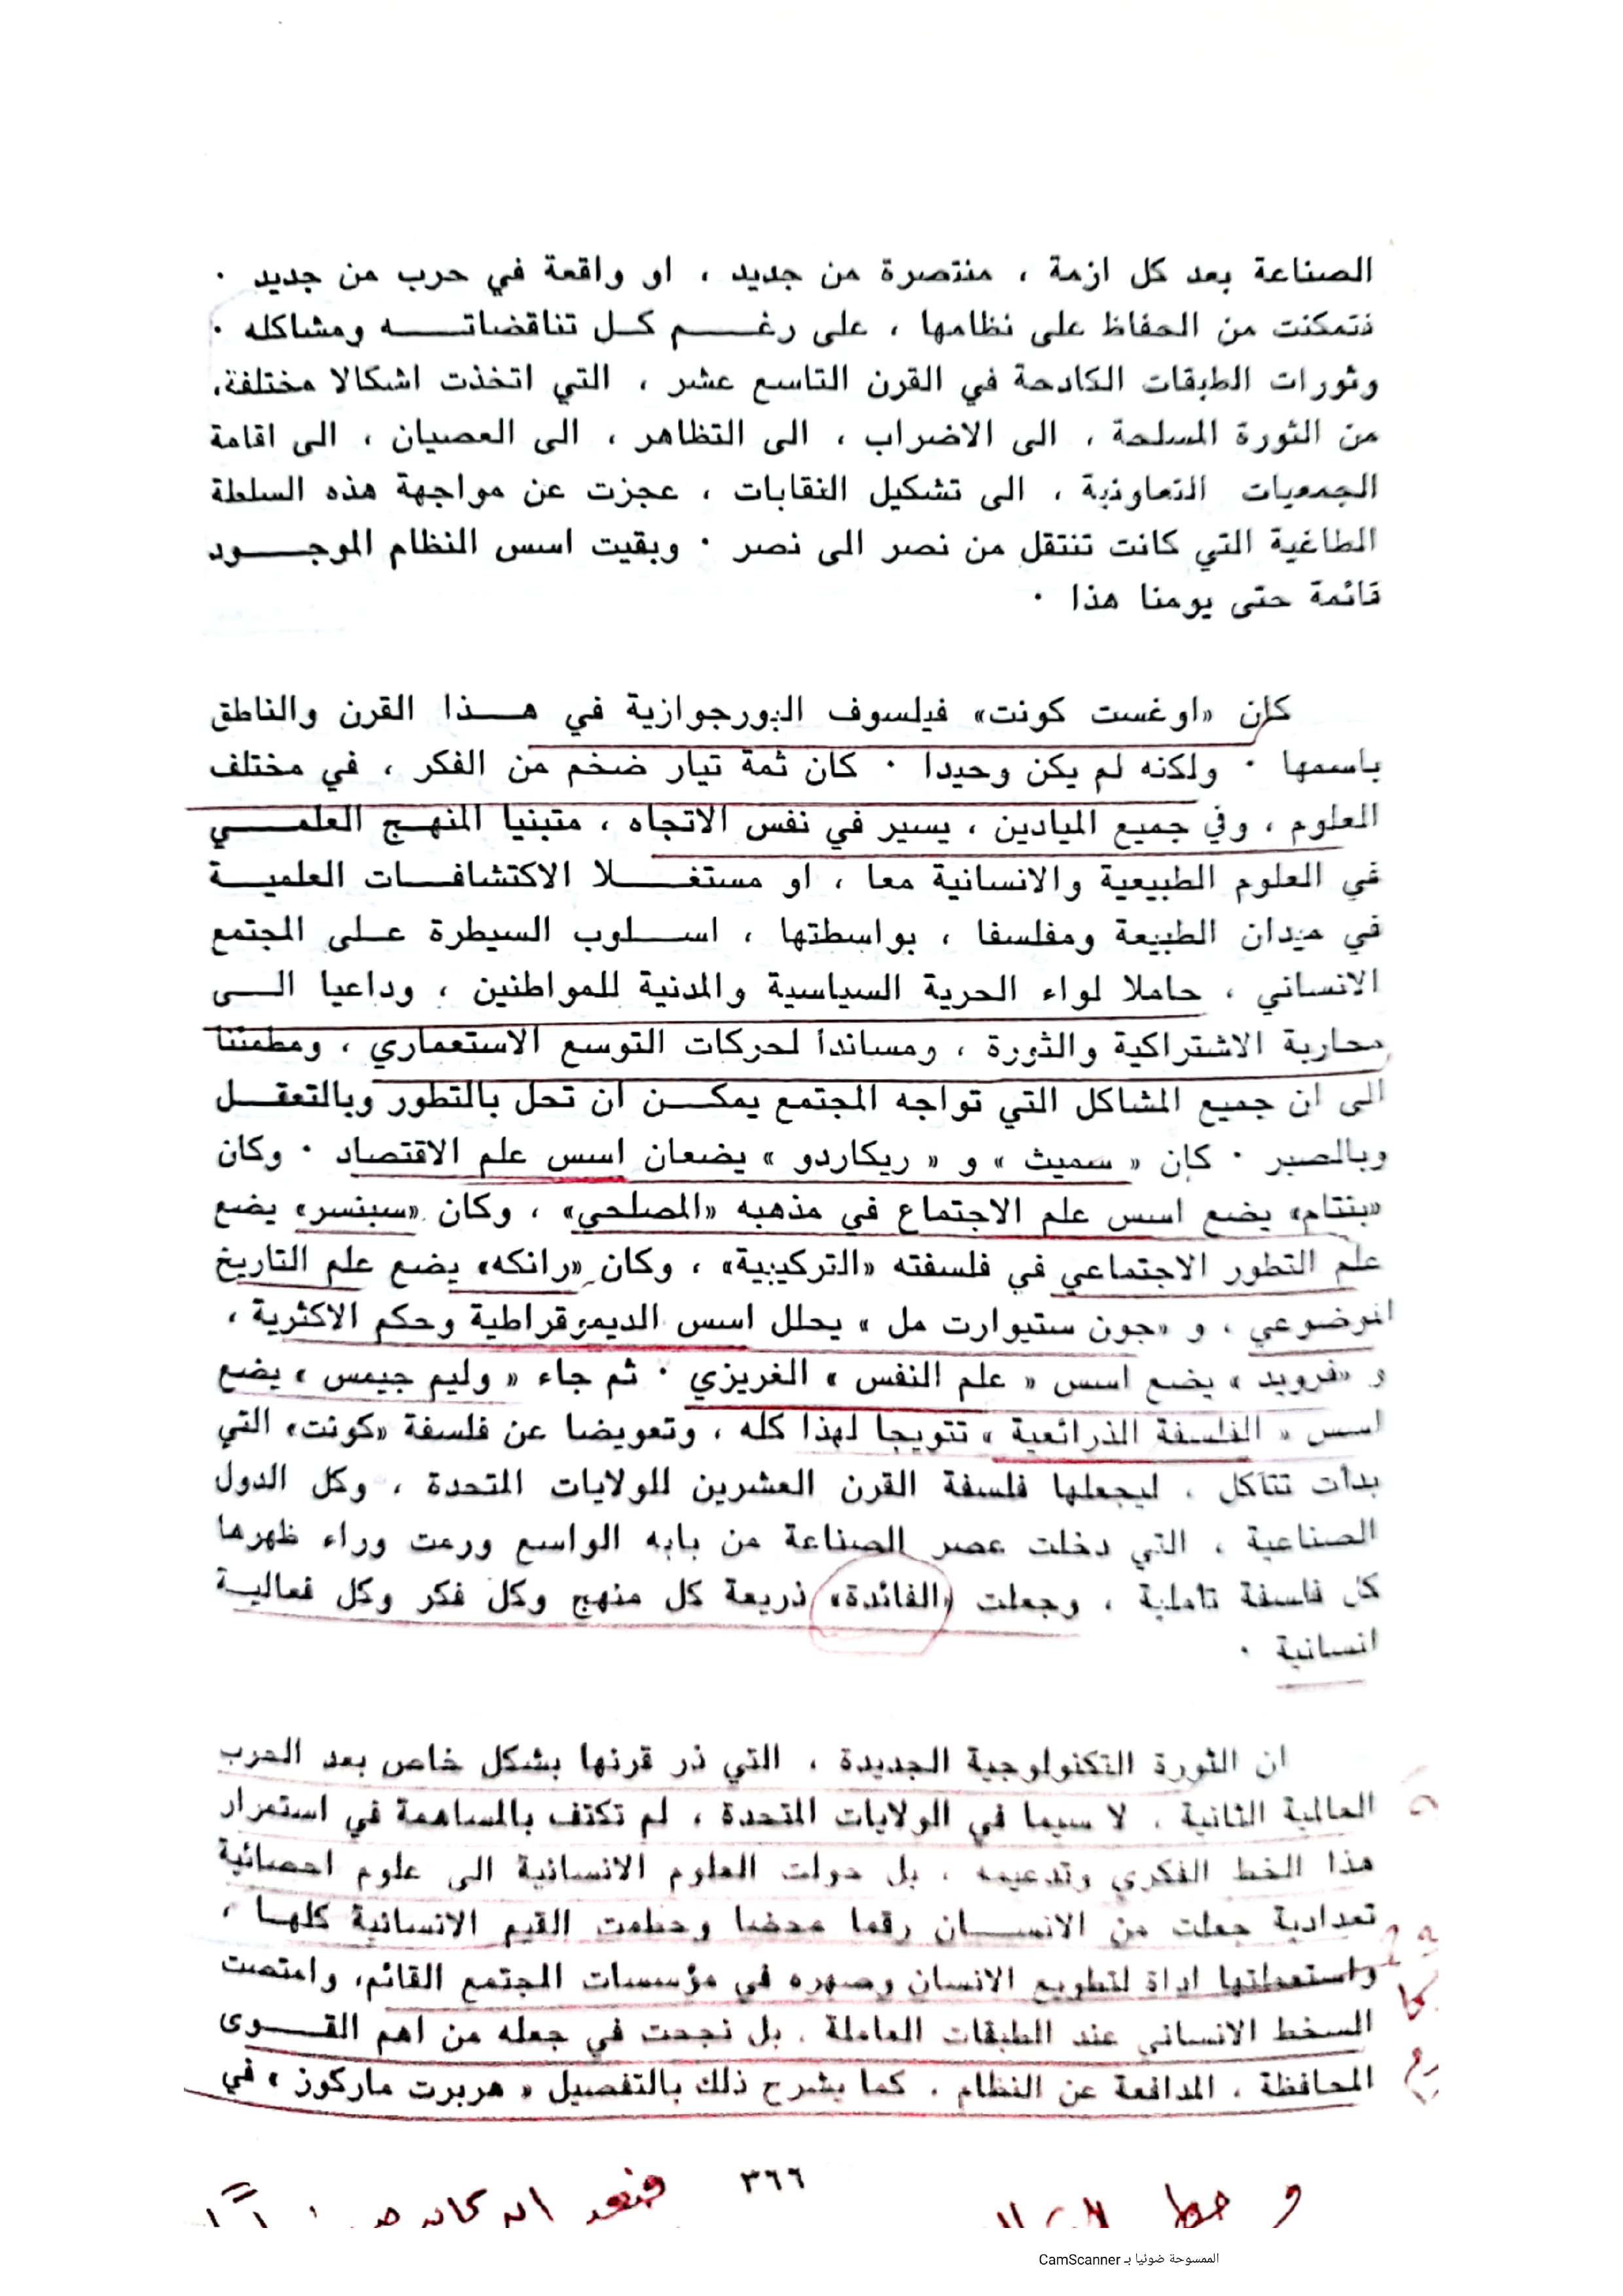 الصناعة بعد كل ازمة ، منتصرة من جديد ، او واقعة في حرب من جديد ٠
فتمكنت من الحفاظ على نظامها ، على رغـــم كـل تناقضاتـــه ومشاكله ٠
وثورات الطبقات الكادحة في القرن التاسع عشر ، التي اتخذت اشكالا مختلفة،
من الثورة المسلحة ، الى الاضراب ، الى التظاهر ، الى العصيان ، الى اقامة
الجمعيات التعاونية ، الى تشكيل النقابات ، عجزت عن مواجهة هذه السلطة
الطاغية التي كانت تنتقل من نصر الى نصر ٠ وبقيت اسس النظام الموجـــود
قائمة حتى يومنا هذا ٠
كان «اوغست كونت» فيلسوف البورجوازية في هـــذا القرن والناطق
باسمها ٠ ولكنه لم يكن وحيدا ٠ كان ثمة تيار ضخم من الفكر ، في مختلف
العلوم ، وفي جميع الميادين ، يسير في نفس الاتجاه ، متبنيا المنهـج العلمـــي
في العلوم الطبيعية والانسانية معا ، او مستغـــلا الاكتشافـــات العلميـــة
في ميدان الطبيعة ومفلسفا ، بواسطتها ، اســـلوب السيطرة عـلـى المجتمع
الانساني ، حاملا لواء الحرية السياسية والمدنية للمواطنين ، وداعيا الـــى
محاربة الاشتراكية والثورة ، ومساندا لحركات التوسع الاستعماري ، ومطمئنا
الى ان جميع المشاكل التي تواجه المجتمع يمكـــن ان تحل بالتطور وبالتعقـــل
وبالصبر ٠ كان « سميث » و « ريكاردو » يضعان اسس علم الاقتصاد ٠ وكان
«بنتام» يضع اسس علم الاجتماع في مذهبه «المصلحي» ، وكان «سبنسر» يضع
علم التطور الاجتماعي في فلسفته «التركيبية» ، وكان «رانكه» يضع علم التاريخ
الموضوعي ، و «جون ستيوارت مل » يحلل اسس الديموقراطية وحكم الاكثرية ،
و «فرويد » يضع اسس « علم النفس » الغريزي ٠ ثم جاء « وليم جيمس » يضع
اسس « الفلسفة الذرائعية » تتويجا لهذا كله ، وتعويضا عن فلسفة «كونت» التي
بدأت تتآكل ، ليجعلها فلسفة القرن العشرين للولايات المتحدة ، وكل الدول
الصناعية ، التي دخلت عصر الصناعة من بابه الواسع ورمت وراء ظهرها
كل فلسفة تأملية ، وجعلت «الفائدة» ذريعة كل منهج وكل فكر وكل فعاليـة
انسانية ٠
ان الثورة التكنولوجية الجديدة ، التي ذر قرنها بشكل خاص بعد الحرب
العالمية الثانية ، لا سيما في الولايات المتحدة ، لم تكتف بالمساهمة في استمرار
هذا الخط الفكري وتدعيمه ، بل حولت العلوم الانسانية الى علوم احصائية
تعدادية جعلت من الانســـان رقما محضا وحطمت القيم الانسانية كلهـا ،
واستعملتها اداة لتطويع الانسان وصهره في مؤسسات المجتمع القائم، وامتصت
السخط الانساني عند الطبقات العاملة ، بل نجحت في جعله من اهم القـــوى
المحافظة ، المدافعة عن النظام ، كما يشرح ذلك بالتفصيل « هربرت ماركوز » في
٣٦٦
الممسوحة ضوئيا بـ CamScanner